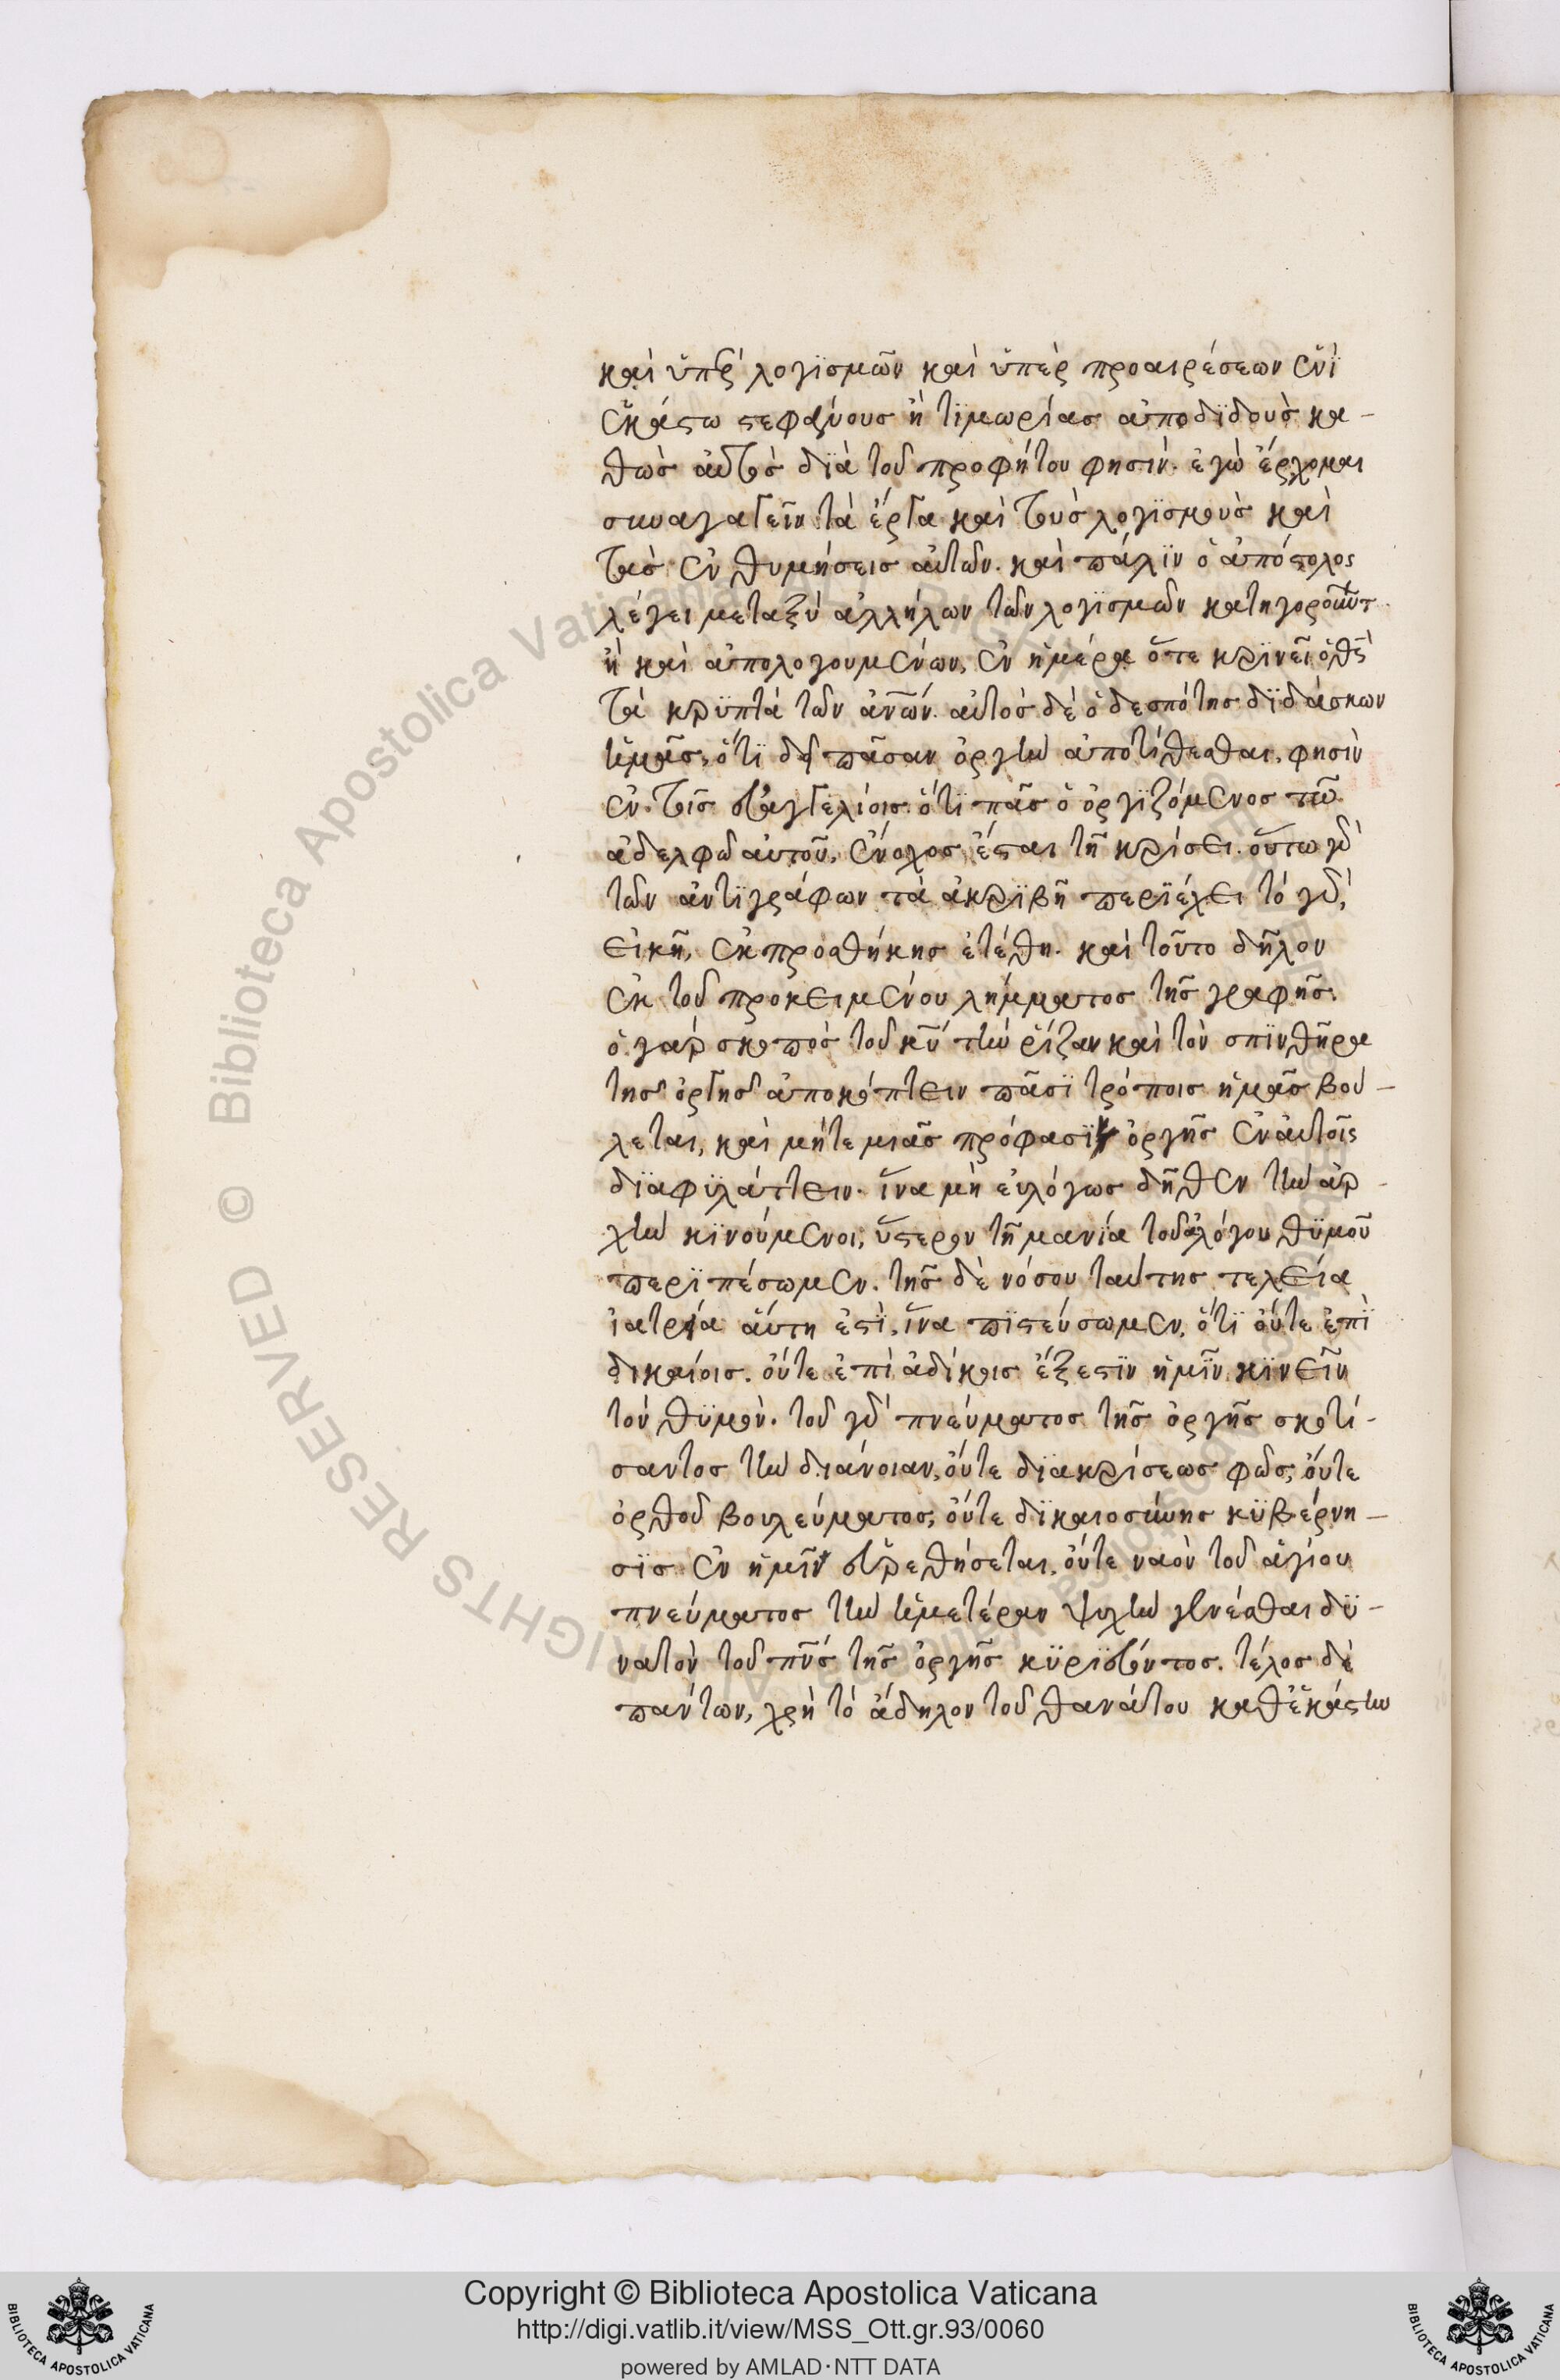 καὶ ὑπὲρ λογϊσμῶν καὶ ὑπὲρ προαιρέσεων ἑνὶ
ἑκάστω στεφάνους ἢ τϊμωρίας ἀποδϊδοὺς κα-
θὼς αὐτὸς δϊὰ τοῦ προφήτου φησίν. ἐγὼ ἔρχομαι
συναγαγεῖν τὰ ἔργα καὶ τοὺς λογϊσμοὺς καὶ
τὰς ἐνθυμήσεις αὐτῶν. καὶ πάλϊν ὁ ἀπόστολος
λέγει μεταξὺ ἀλλήλων τῶν λογϊσμῶν κατηγορούντ
ἢ καὶ ἀπολογουμένων, ἐν ἡμέρα ὅτε κρϊνεῖ ὁ θς
τὰ κρϋπτὰ τῶν ἀνων. αὐτὸς δὲ ὁ δεσπότης δϊδάσκων
ἡμᾶς, ὅτϊ δεῖ πᾶσαν ὀργὴν ἀποτίθεσθαι, φησὶν
ἐν τοῖς εὐαγγελίοις ὅτϊ πᾶς ὁ ὀργϊζόμενος τῶ
ἀδελφῶ αὐτοῦ, ἔνοχος ἔσται τῆ κρίσει. οὕτω γὰρ
τῶν ἀντϊγράφων τὰ ἀκρϊβῆ περϊέχει τὸ γὰρ,
εἰκῆ, ἐκ προσθήκης ἐτέθη. καὶ τοῦτο δῆλον
ἐκ τοῦ προκειμένου λήμματος τῆς γραφῆς.
ὁ γὰρ σκοπὸς τοῦ κυ τὴν ῥίζαν καὶ τὸν σπϊνθῆρα
τῆς ὀργῆς ἀποκόπτειν πᾶσϊ τρόποις ἡμᾶς βού-
λεται, καὶ μήτε μιᾶς πρόφασϊν ὀργῆς ἐν αὐτοῖς
δϊαφϋλάττειν. ἵνα μὴ εὐλόγως δῆθεν τὴν ἀρ-
χὴν κϊνούμενοι, ὕστερον τῆ μανία τοῦ ἀλόγου θϋμοῦ
περϊπέσωμεν. τῆς δὲ νόσου ταύτης τελεία
ἰατρία αὕτη ἐστϊ, ἵνα πϊστεύσωμεν, ὅτϊ οὔτε ἐπὶ
δικαίοις. οὔτε ἐπὶ ἀδίκοις ἔξεστϊν ἡμῖν κϊνεῖν
τὸν θϋμόν. τοῦ γὰρ πνεύματος τῆς ὀργῆς σκοτί-
σαντος τὴν διάνοιαν, οὔτε δϊακρίσεως φῶς, οὔτε
ὀρθοῦ βουλεύματος, οὔτε δϊκαιοσύνης κϋβέρνη-
σϊς ἐν ἡμῖν εὑρεθήσεται, οὔτε ναὸν τοῦ ἁγίου
πνεύματος τὴν ἡμετέραν ψυχὴν γενέσθαι δϋ-
νατὸν τοῦ πνς τῆς ὀργῆς κϋρϊεύοντος. τέλος δὲ
πάντων, χρὴ τὸ ἄδηλον τοῦ θανάτου καθ ἑκάστην
Copyright © Biblioteca Apostolica Vaticana
http://digi.vatlib.it/view/MSS_Ott.gr.93/0060
powered by AMLAD·NTT DATA